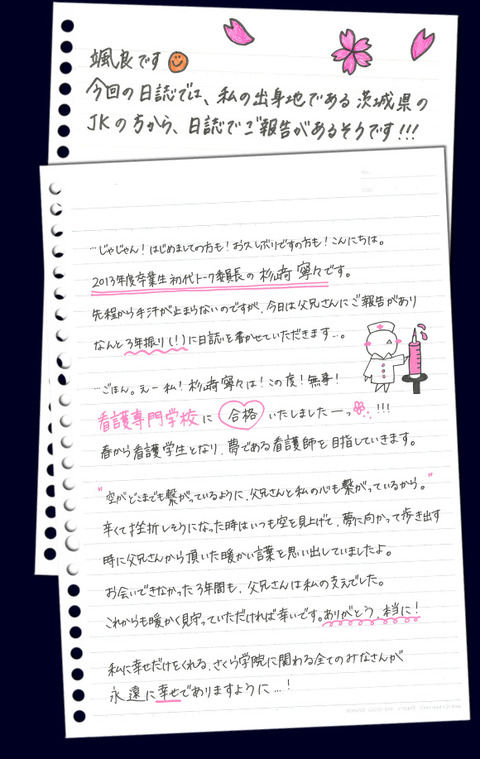 颯良です
今回の日誌では、私の出身地である茨城県の
JKの方から、日誌でご報告があるそうです!!!
…じゃじゃん！はじめましての方も！お久しぶりですの方も！こんにちは。
2013年度卒業生 初代トーク委員長の 杉﨑 寧々です。
先程から手汗が止まらないのですが、今日は父兄さんにご報告があり
なんと3年振り(!)に日誌を書かせていただきます…。
…ごほん。えー 私！杉﨑寧々は！この度！無事！
看護専門学校に 合格 いたしましたーっ !!!
春から看護学生となり、夢である看護師を目指していきます。
"空がどこまでも繋がっているように、父兄さんと私の心も繋がっているから。"
辛くて挫折しそうになった時はいつも空を見上げて、夢に向かって歩き出す
時に父兄さんから頂いた暖かい言葉を思い出していましたよ。
お会いできなかった3年間も、父兄さんは私の支えでした。
これからも暖かく見守っていただければ幸いです。ありがとう、本当に！
私に幸せだけをくれる、さくら学院に関わる全てのみなさんが
永遠に幸せでありますように…！